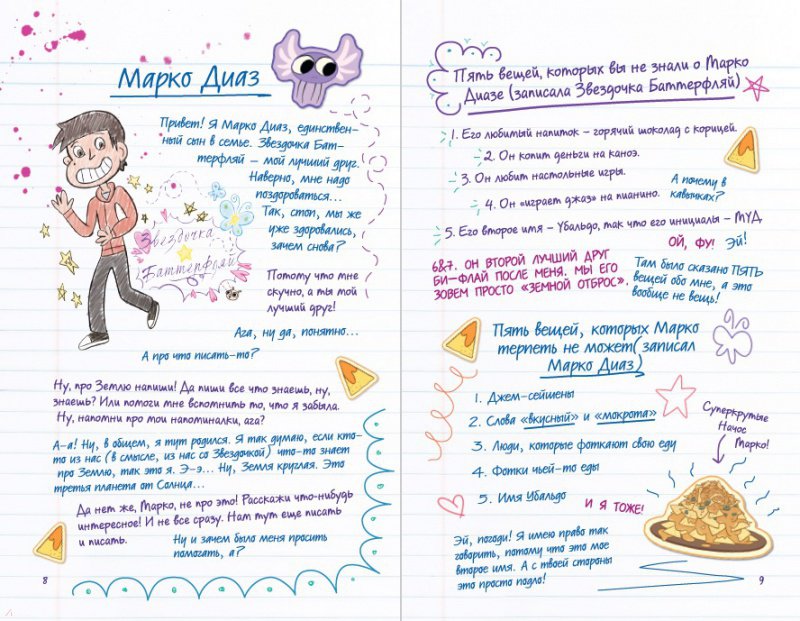 Марко Диаз
Привет! Я Марко Диаз, единствен-
ный сын в семье. Звездочка Бат-
терфляй – мой лучший друг.
Наверно, мне надо
поздороваться...
Так, стоп, мы же
уже здоровались,
зачем снова?
Звездочка
Баттерфляй
Потому что мне
скучно, а ты мой
лучший друг!
Ага, ну да, понятно...
А про что писать-то?
Ну, про Землю напиши! Да пиши все что знаешь, ну,
знаешь? Или помоги мне вспомнить то, что я забыла.
Ну, напомни про мои напоминалки, ага?
А-а! Ну, в общем, я тут родился. Я так думаю, если кто-
то из нас (в смысле, из нас со Звездочкой) что-то знает
про Землю, так это я. Э-э... Ну, Земля круглая. Это
третья планета от Солнца...
Да нет же, Марко, не про это! Расскажи что-нибудь
интересное! И не все сразу. Нам тут еще писать
и писать.
Ну и зачем было меня просить
помогать, а?
8
Пять вещей, которых вы не знали о Марко
Диазе (записала Звездочка Баттерфляй)
1. Его любимый напиток – горячий шоколад с корицей.
2. Он копит деньги на каноэ.
3. Он любит настольные игры.
А почему в
кавычках?
4. Он «играет джаз» на пианино.
5. Его второе имя – Убальдо, так что его инициалы – МУД.
ОЙ, ФУ!
Эй!
6&7. ОН ВТОРОЙ ЛУЧШИЙ ДРУГ
БИ-ФЛАЙ ПОСЛЕ МЕНЯ. МЫ ЕГО
ЗОВЕМ ПРОСТО «ЗЕМНОЙ ОТБРОС».
Там было сказано ПЯТЬ
вещей обо мне, а это
вообще не вещь!
Пять вещей, которых Марко
терпеть не может (записал
Марко Диаз)
1. Джем-сейшены
2. Слова «вкусный» и «мокрота»
3. Люди, которые фоткают свою еду
4. Фотки чьей-то еды
5. Имя Убальдо
И Я ТОЖЕ!
Суперкрутые
Начос
Марко!
Эй, погоди! Я имею право так
говорить, потому что это мое
второе имя. А с твоей стороны
это просто подло!
9